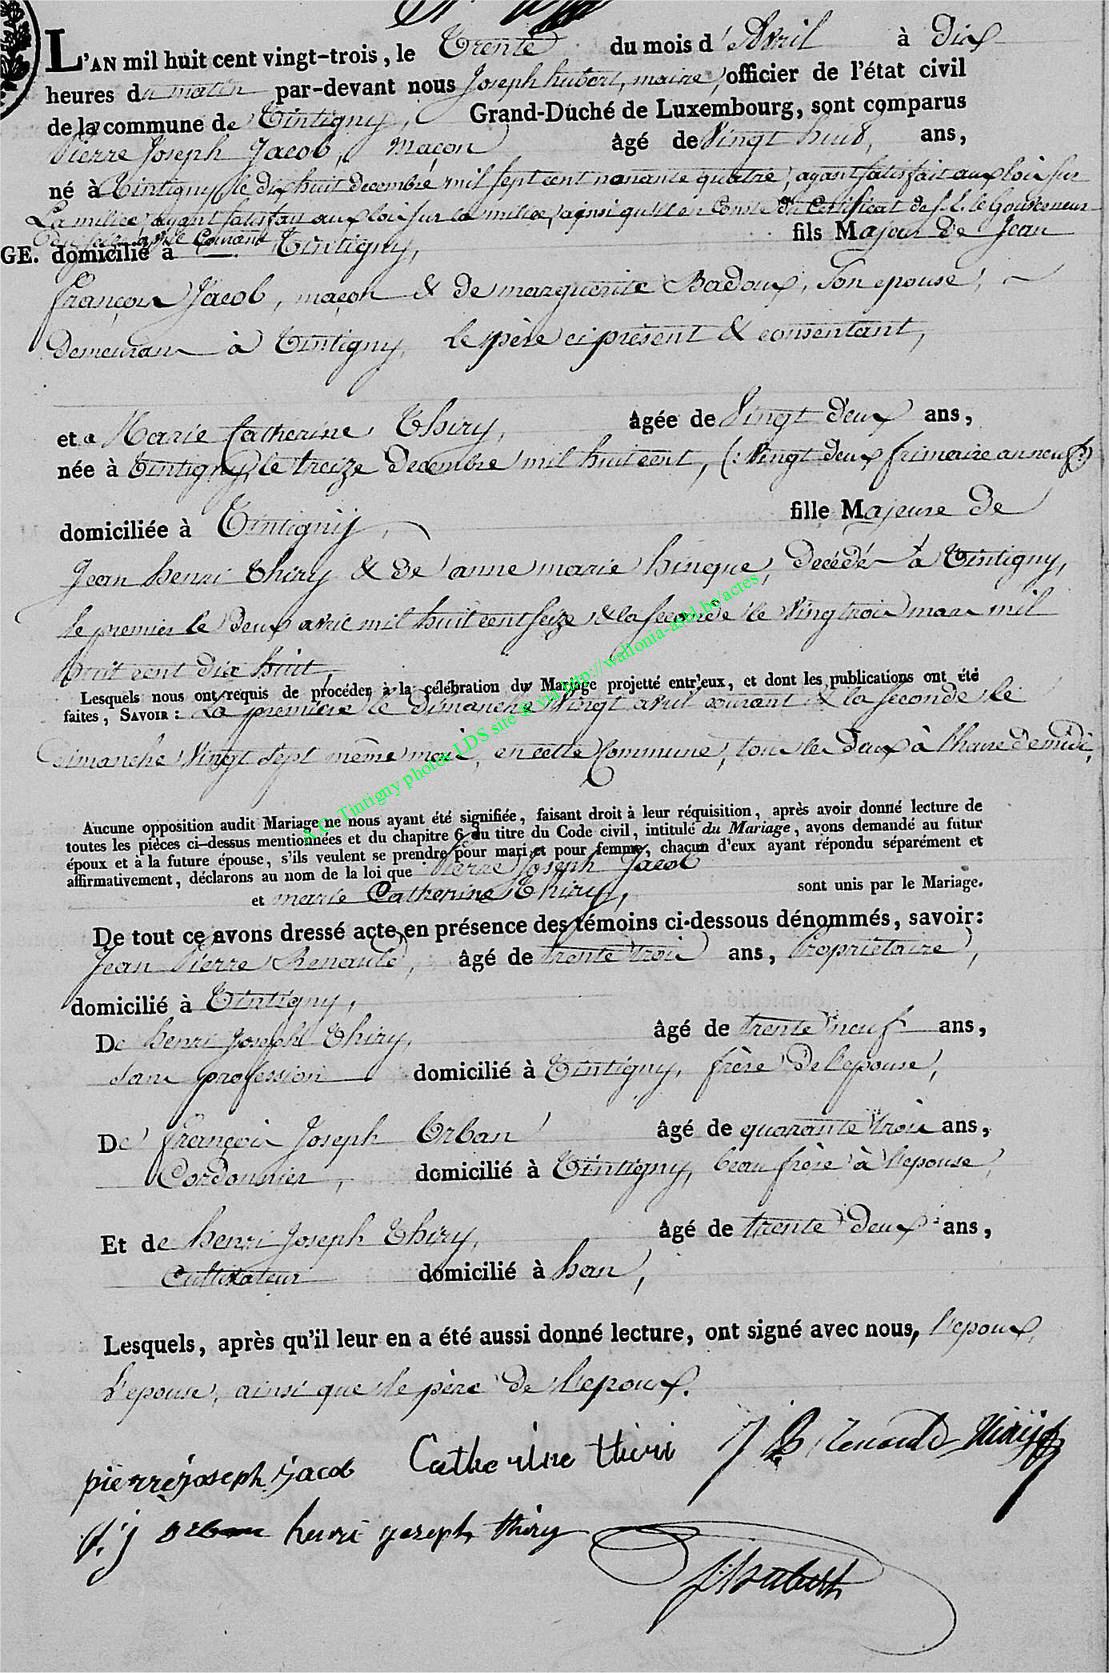 L'AN mil huit cent vingt-trois, le Trente du mois d'Avril à Dix
heures du matin par-devant nous Joseph hubert, maire, officier de l'état civil
de la commune de Tintigny, Grand-Duché de Luxembourg, sont comparus
Pierre Joseph Jacob, maçon âgé de Vingt huit, ans,
né à Tintigny, le dix huit decembre mil sept cent nonante quatre, ayant satisfait aux lois sur
La milice, ayant satisfait aux lois sur la milice, ainsi qu'il en Conste du Certificat de S. E. le Gouverneur
courant
GE. domicilié à Tintigny, fils Majeur de Jean
françois Jacob, maçon & de marguerite Badoux, Son epouse,
Demeurant à Tintigny, le père ci présent & consentant,
et Marie Catherine Thiry, âgée de Vingt deux ans,
née à Tintigny, le treize decembre mil huit cent, (: Vingt deux frimaire an neuf :)
domiciliée à Tintigny, fille Majeure de
Jean henri Thiry & de anne marie hinque, decédé à Tintigny,
le premier le Deux avril mil huit cent seize & la seconde le Vingt trois mars mil
huit cent dix huit,
Lesquels nous ont requis de procéder à la célébration du Mariage projetté entr'eux, et dont les publications ont été
faites, SAVOIR : La première le dimanche Vingt avril courant & la seconde le
dimanche Vingt sept même mois, en cette Commune, tous les Deux à l'heure de midi,
S.C. Tintigny photos LDS site & via http://wallonia-asbl.be/actes
Aucune opposition audit Mariage ne nous ayant été signifiée, faisant droit à leur réquisition, après avoir donné lecture de
toutes les pièces ci-dessus mentionnées et du chapitre 6 du titre du Code civil, intitulé du Mariage, avons demandé au futur
époux et à la future épouse, s'ils veulent se prendre pour mari et pour femme, chacun d'eux ayant répondu séparément et
affirmativement, déclarons au nom de la loi que Pierre Joseph Jacob
et marie Catherine Thiry, sont unis par le Mariage.
De tout ce avons dressé acte en présence des témoins ci-dessous dénommés, savoir:
Jean Pierre Renauld, âgé de trente trois ans, Propriétaire,
domicilié à Tintigny,
De henri Joseph Thiry, âgé de trente neuf ans,
Sans profession domicilié à Tintigny, frère de l'epouse,
De françois Joseph Orban âgé de quarante trois ans,
Cordonnier, domicilié à Tintigny, beau frère à l'epouse,
Et de henri Joseph Thiry, âgé de trente deux ans,
Cultivateur domicilié à han,
Lesquels, après qu'il leur en a été aussi donné lecture, ont signé avec nous, l'epoux
L'epouse, ainsi que le père de l'epoux.
pierre joseph jacob Catherine thiri Renauld thiry
f. j orban henri joseph thiry
J hubert